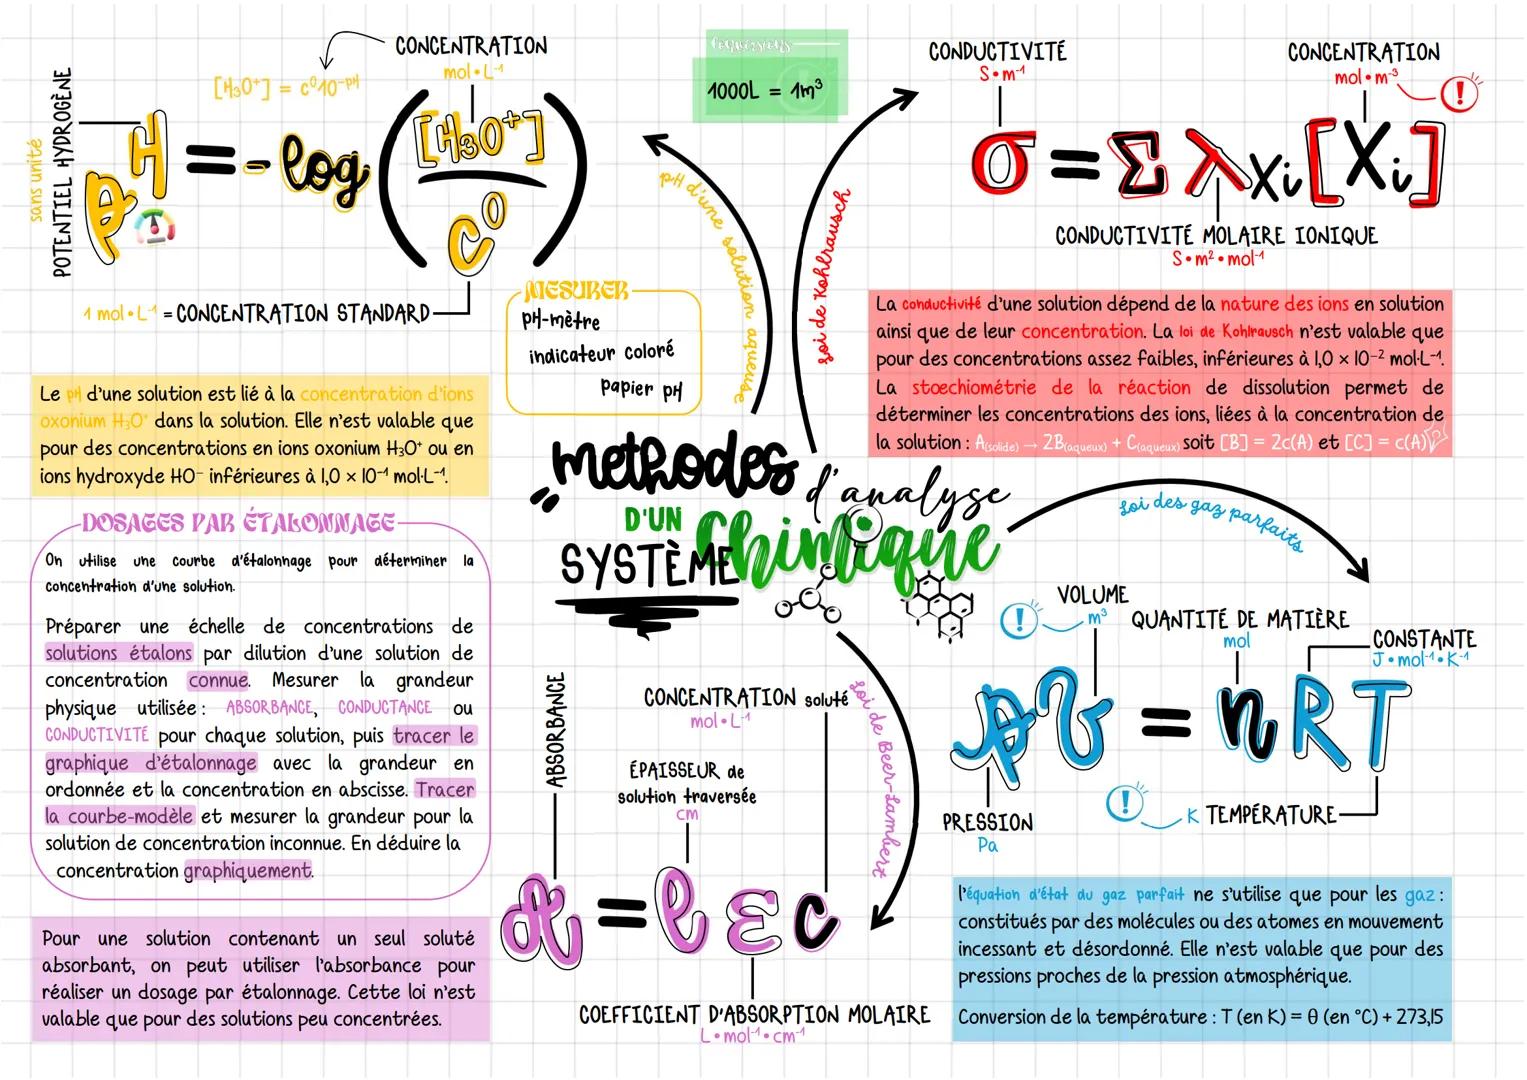 CONCENTRATION
mol•L⁻¹
[H₃O⁺] = c⁰10⁻ᵖᴴ
sans unité
POTENTIEL HYDROGÈNE
pH = - log ([H₃O⁺] / c⁰)
1 mol•L⁻¹ = CONCENTRATION STANDARD
MESURER
pH-mètre
indicateur coloré
papier pH
pH d'une solution aqueuse
Le pH d'une solution est lié à la concentration d'ions
oxonium H₃O⁺ dans la solution. Elle n'est valable que
pour des concentrations en ions oxonium H₃O⁺ ou en
ions hydroxyde HO⁻ inférieures à 1,0 × 10⁻¹ mol•L⁻¹.
Conversions
1000L = 1m³
loi de Kohlrausch
CONDUCTIVITÉ
S•m⁻¹
CONCENTRATION
mol•m⁻³
!
σ = Σ λxi [Xi]
CONDUCTIVITÉ MOLAIRE IONIQUE
S•m²•mol⁻¹
La conductivité d'une solution dépend de la nature des ions en solution
ainsi que de leur concentration. La loi de Kohlrausch n'est valable que
pour des concentrations assez faibles, inférieures à 1,0 × 10⁻² mol•L⁻¹.
La stœchiométrie de la réaction de dissolution permet de
déterminer les concentrations des ions, liées à la concentration de
la solution : A(solide) → 2B(aqueux) + C(aqueux) soit [B] = 2c(A) et [C] = c(A)
methodes d'analyse
D'UN chimique
SYSTÈME
DOSAGES PAR ÉTALONNAGE
On utilise une courbe d'étalonnage pour déterminer la
concentration d'une solution.
Préparer une échelle de concentrations de
solutions étalons par dilution d'une solution de
concentration connue. Mesurer la grandeur
physique utilisée : ABSORBANCE, CONDUCTANCE ou
CONDUCTIVITÉ pour chaque solution, puis tracer le
graphique d'étalonnage avec la grandeur en
ordonnée et la concentration en abscisse. Tracer
la courbe-modèle et mesurer la grandeur pour la
solution de concentration inconnue. En déduire la
concentration graphiquement.
Pour une solution contenant un seul soluté
absorbant, on peut utiliser l'absorbance pour
réaliser un dosage par étalonnage. Cette loi n'est
valable que pour des solutions peu concentrées.
loi de Beer-Lambert
ABSORBANCE
CONCENTRATION soluté
mol•L⁻¹
ÉPAISSEUR de
solution traversée
cm
A = l ε c
COEFFICIENT D'ABSORPTION MOLAIRE
L•mol⁻¹•cm⁻¹
loi des gaz parfaits
VOLUME
m³
!
QUANTITÉ DE MATIÈRE
mol
CONSTANTE
J•mol⁻¹•K⁻¹
pV = nRT
PRESSION
Pa
!
K TEMPÉRATURE
l'équation d'état du gaz parfait ne s'utilise que pour les gaz :
constitués par des molécules ou des atomes en mouvement
incessant et désordonné. Elle n'est valable que pour des
pressions proches de la pression atmosphérique.
Conversion de la température : T (en K) = θ (en °C) + 273,15